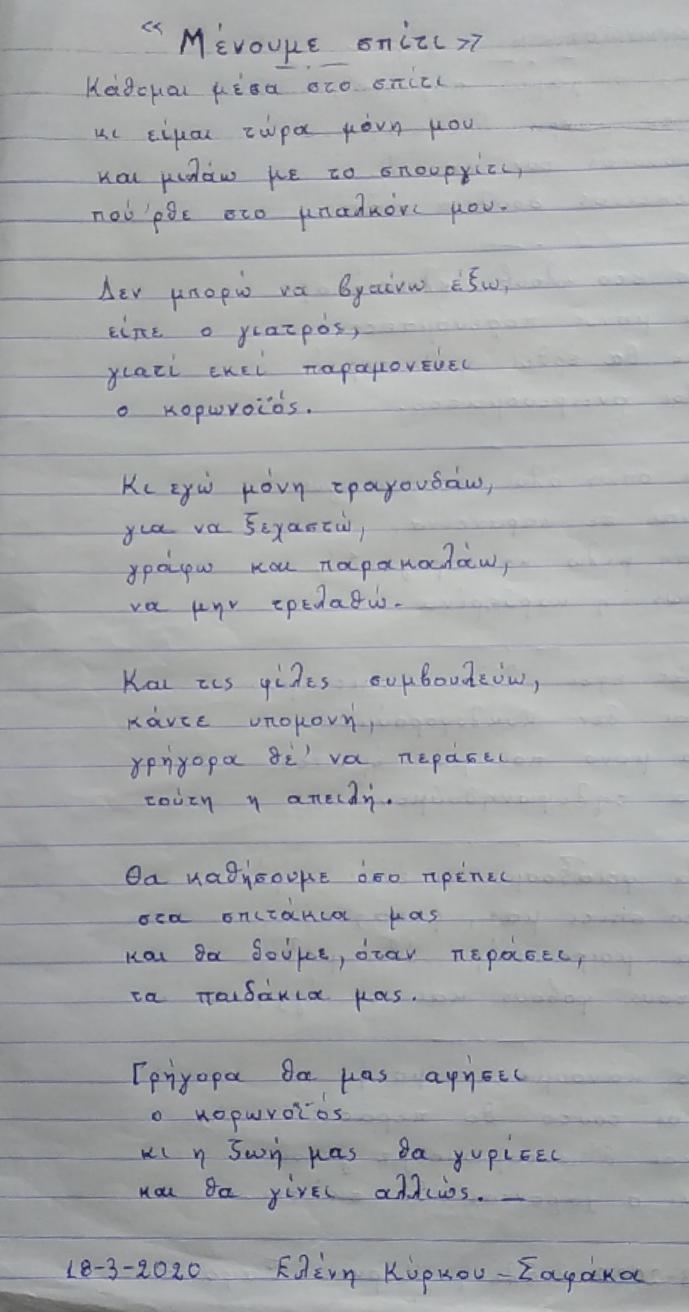 « Μένουμε σπίτι »
Κάθομαι μέσα στο σπίτι
κι είμαι τώρα μόνη μου
και μιλάω με το σπουργίτι,
πού 'ρθε στο μπαλκόνι μου.
Δεν μπορώ να βγαίνω έξω,
είπε ο γιατρός,
γιατί εκεί παραμονεύει
ο κορωνοϊός.
Κι εγώ μόνη τραγουδάω,
για να ξεχαστώ,
γράφω και παρακαλάω,
να μην τρελαθώ.
Και τις φίλες συμβουλεύω,
κάντε υπομονή,
γρήγορα θέ' να περάσει
τούτη η απειλή.
Θα καθήσουμε όσο πρέπει
στα σπιτάκια μας
και θα δούμε, όταν περάσει,
τα παιδάκια μας.
Γρήγορα θα μας αφήσει
ο κορωνοϊός
κι η ζωή μας θα γυρίσει
και θα γίνει αλλιώς. —
18-3-2020 Ελένη Κύρκου - Σαφάκα